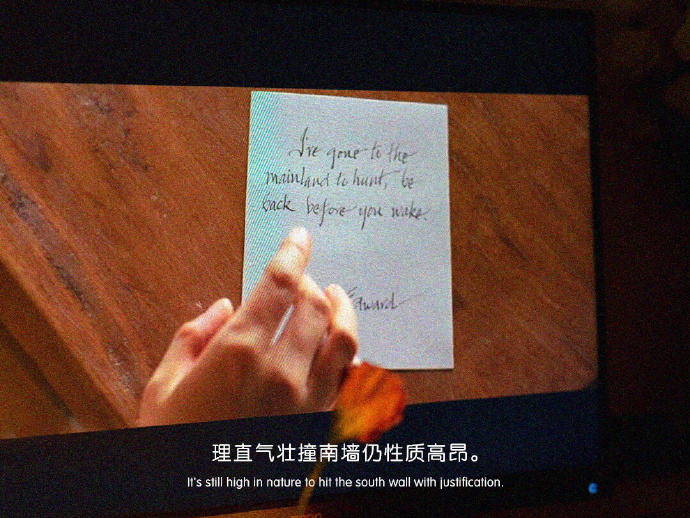 I've gone to the
mainland to hunt, be
back before you wake.
Edward
理直气壮撞南墙仍性质高昂。
It's still high in nature to hit the south wall with justification.